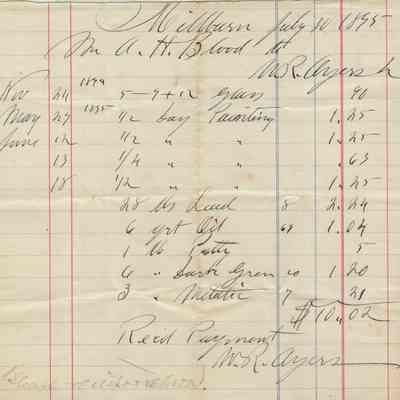 Millburn July 10 1895
Mr A. H. Blood dt
W. R. Ayers Dr
Nov 24 1894 5-9+12 Glass 90
May 27 1895 1/2 day Painting 1.25
June 12 1/2 " " 1.25
13 1/4 " " .63
18 1/2 " " 1.25
28 lbs Lead 8 2.24
6 qrt Oil 1.04
1 lb Putty 5
6 " Dark Green 20 1.20
3 " Metalic 7 21
$10.02
Recd Payment
W. R. Ayers